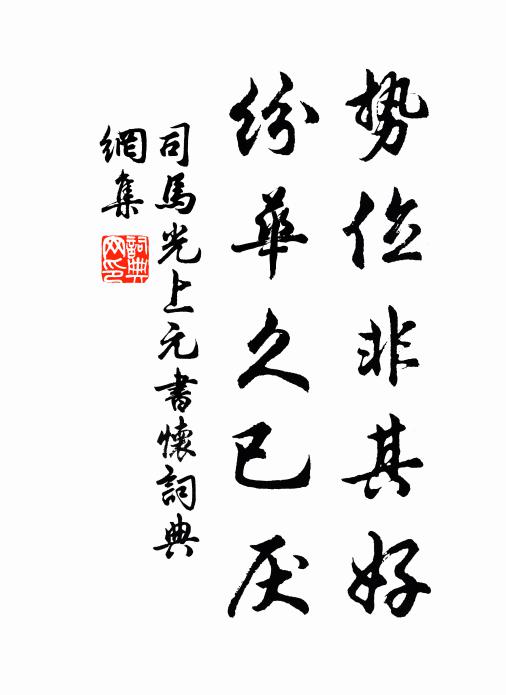 势位非其好
纷華久已厌
司馬光上元書懷詞典
網集
詞典網印